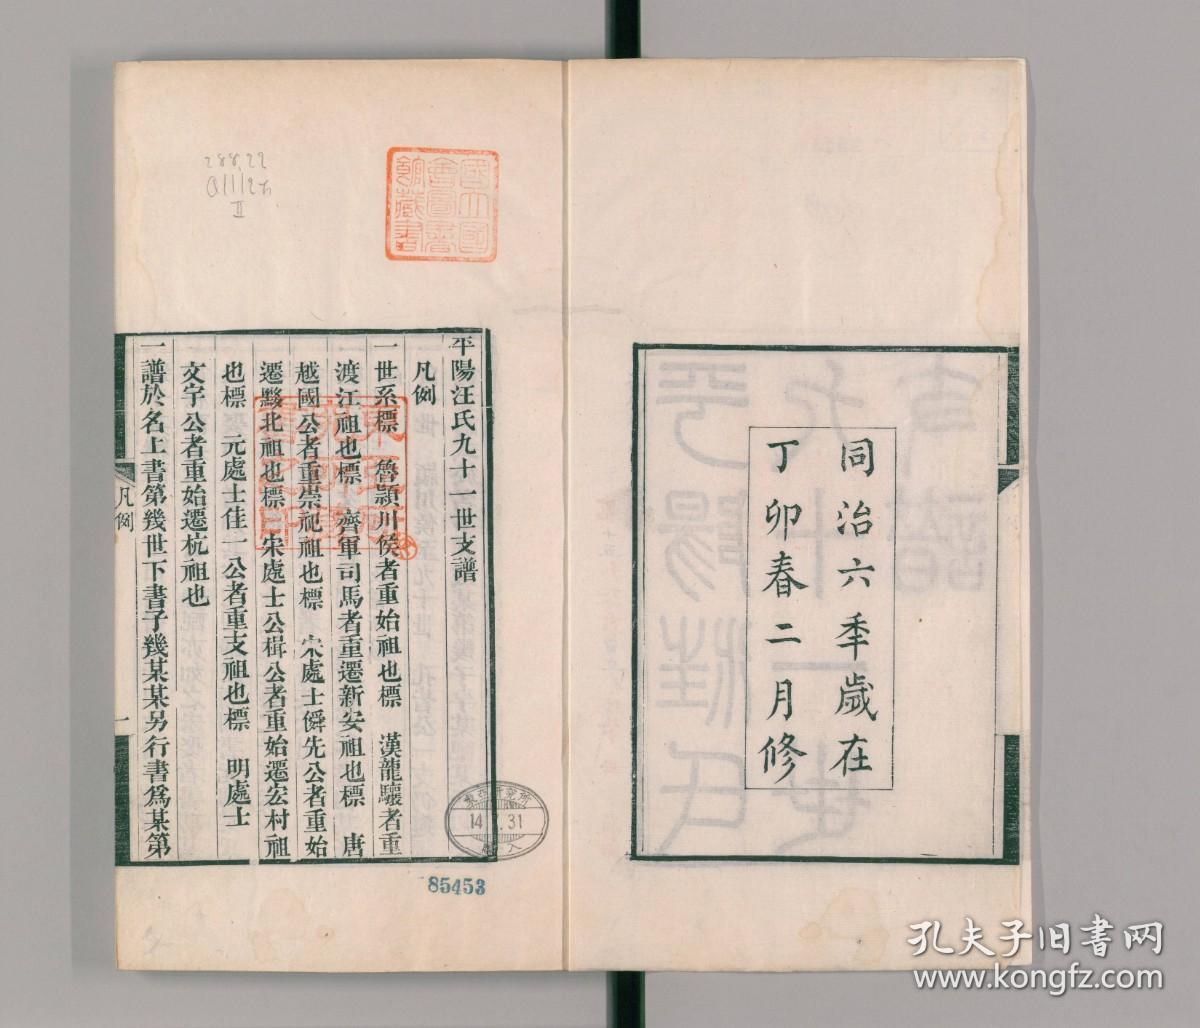 同治六季歲在
丁卯春二月修
平陽汪氏九十一世支譜
凡例
一世系標　魯潁川侯者重始祖也標　漢龍驤者重
渡江祖也標　齊軍司馬者重遷新安祖也標　唐
越國公者重崇祀祖也標　宋處士僻先公者重始
遷黟北祖也標　宋處士公楫公者重始遷宏村祖
也標　元處士佳一公者重支祖也標　明處士
文宇公者重始遷杭祖也
一譜於名上書第幾世下書子幾某某另行書爲某第
凡例
一
國立國
會圖書
館藏書
288.22
II
14.31
85453
孔夫子旧書网
www.kongfz.com